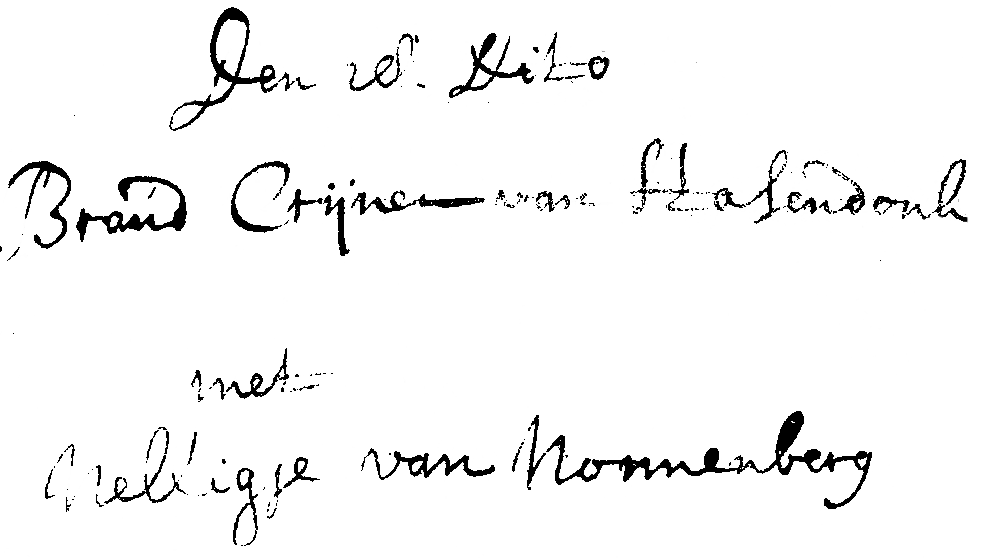 Den 18. Dito
Brand Crijnen van Hasendonk
met
Nelligje van Nonnenberg